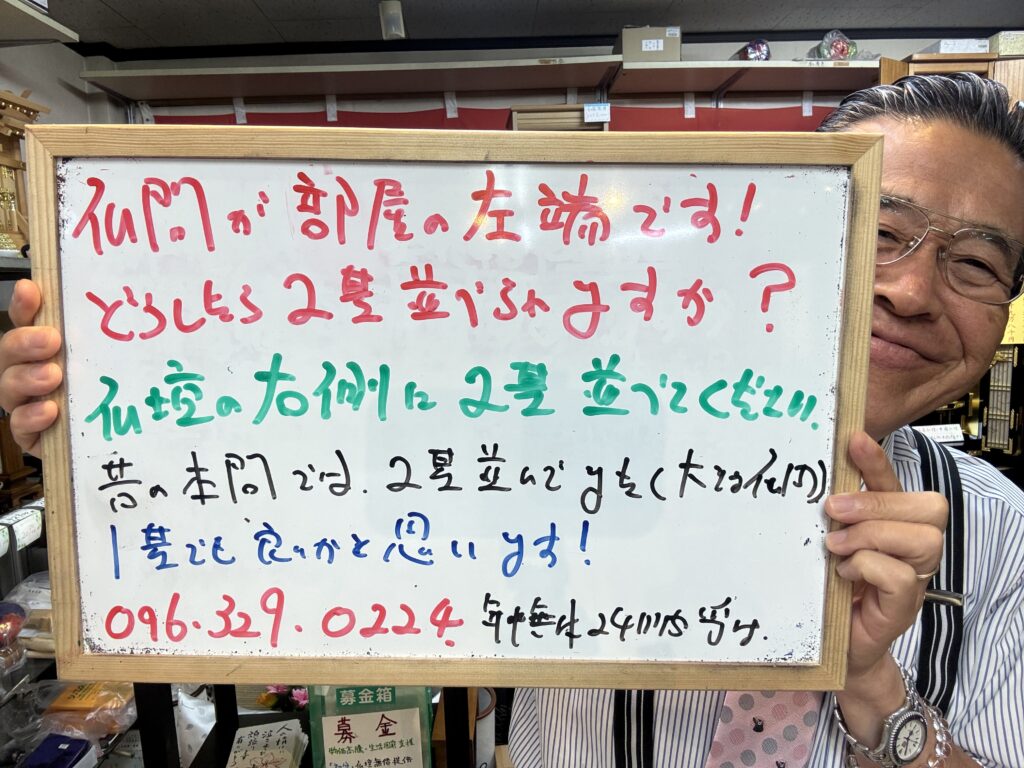 仏間が部屋の左端です!
どうしたら2基並べられますか?
仏壇の右側に2基並べてください.
昔の本間では、2基並んでます(大きな仏間)
1基でも良いかと思います!
096.329.0224 年中無休24時間受付.
募金箱
募金
物価高騰・生活困窮支援